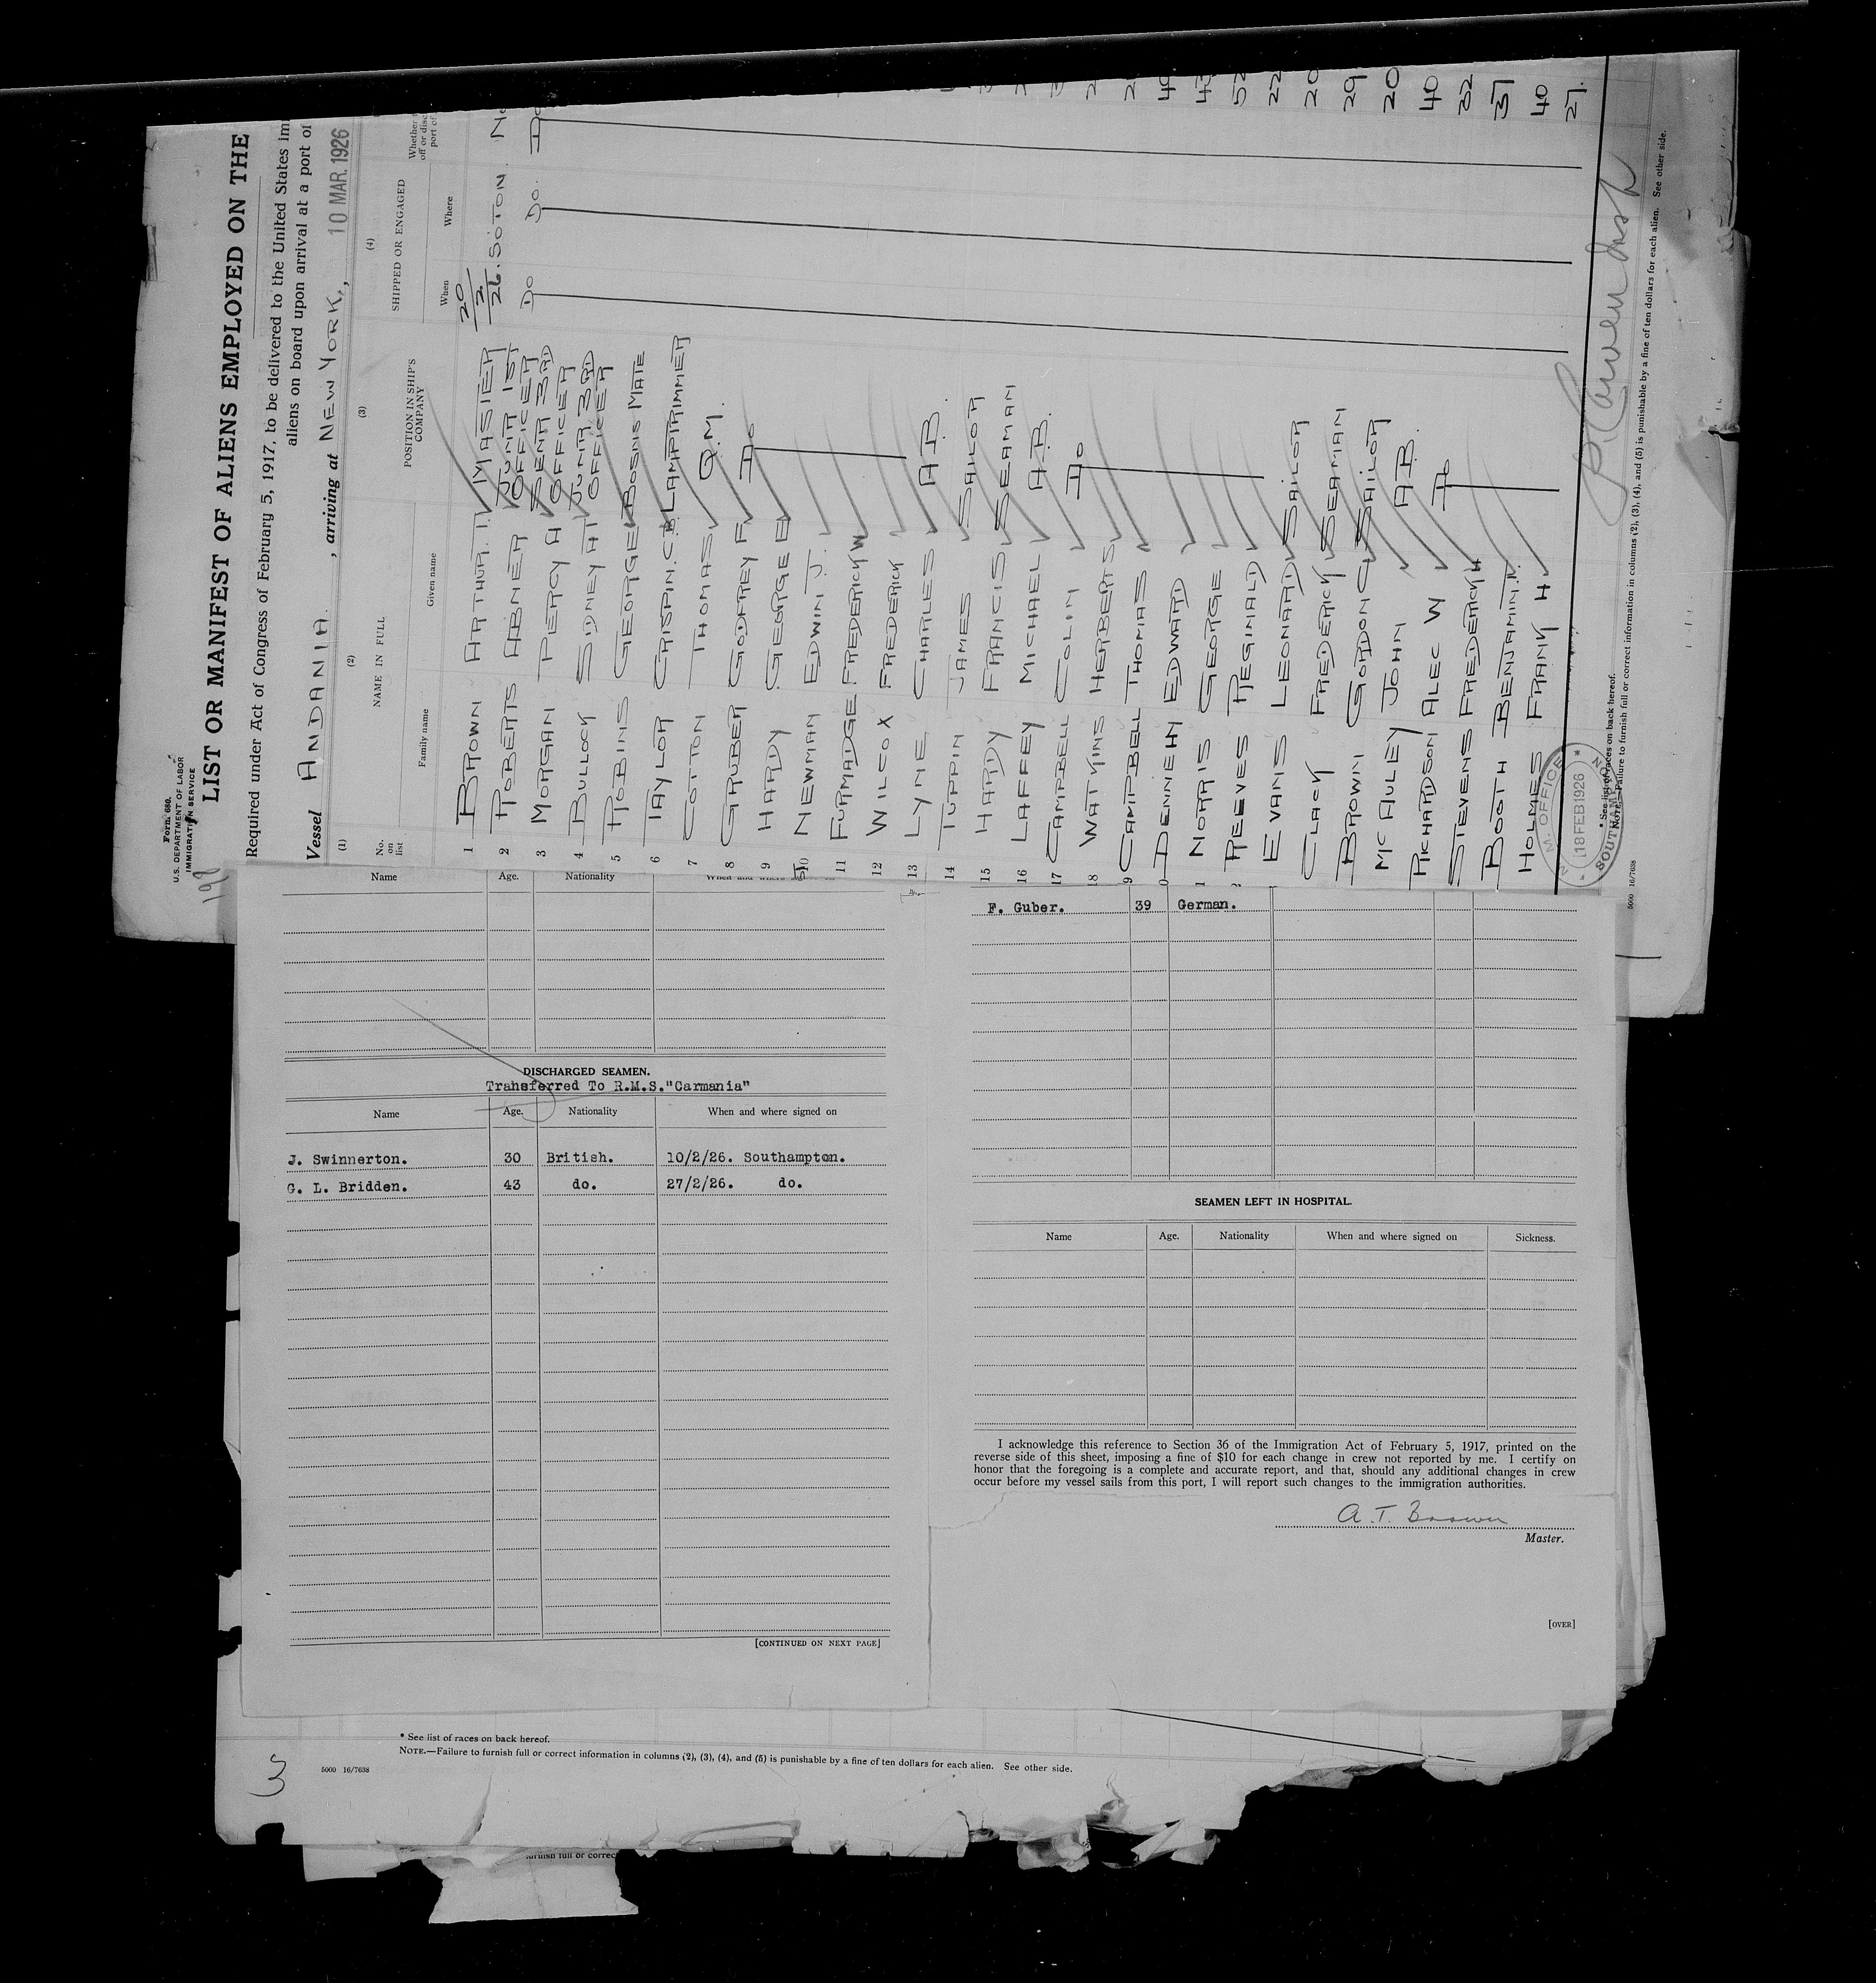 Form 680.
U.S. DEPARTMENT OF LABOR
IMMIGRATION SERVICE
LIST OR MANIFEST OF ALIENS EMPLOYED ON THE
Required under Act of Congress of February 5, 1917, to be delivered to the United States im
aliens on board upon arrival at a port of
Vessel ANDANIA, arriving at NEW YORK, 10 MAR. 1926
(1) (2) (3) (4)
No. on list NAME IN FULL POSITION IN SHIP'S COMPANY SHIPPED OR ENGAGED Whether
off or disc
port of
Family name Given name When Where
1 BROWN ARTHUR. T. MASTER 20/2/26. SOTON. No
2 ROBERTS ABNER JUNR 1ST OFFICER Do Do. Do
3 MORGAN PERCY A SENR 3RD OFFICER
4 BULLOCK SIDNEY A JUNR 3RD OFFICER
5 ROBINS GEORGE BOSNS MATE
6 TAYLOR CRISPIN. C.B LAMPTRIMMER
7 COTTON THOMAS Q.M.
8 GRUBER GODFREY F Do
9 HARDY GEORGE E
10 NEWMAN EDWIN J.
11 FURMADGE FREDERICK W
12 WILCOX FREDERICK
13 LYNE CHARLES A.B.
14 TUPPIN JAMES SAILOR
15 HARDY FRANCIS SEAMAN
16 LAFFEY MICHAEL A.B.
17 CAMPBELL COLIN Do
18 WATKINS HERBERT S
9 CAMPBELL THOMAS
0 DENNEHY EDWARD 40
1 NORRIS GEORGE 43
2 REEVES REGINALD 52
EVANS LEONARD SAILOR 22
CLACK FREDERICK SEAMAN 20
BROWN GORDON C SAILOR 29
MC AULEY JOHN A.B. 20
RICHARDSON ALEC W Do 40
STEVENS FREDERICK H 32
BOOTH BENJAMIN. 37
HOLMES FRANK H 40
27.
M. OFFICE
18 FEB 1926
SOUTHAMPTON
* See list of races on back hereof.
NOTE.—Failure to furnish full or correct information in columns (2), (3), (4), and (5) is punishable by a fine of ten dollars for each alien. See other side.
5000 16/7638
Name Age. Nationality When and where
DISCHARGED SEAMEN.
Transferred To R.M.S."Carmania"
Name Age. Nationality When and where signed on
J. Swinnerton. 30 British. 10/2/26. Southampton.
G. L. Bridden. 43 do. 27/2/26. do.
[CONTINUED ON NEXT PAGE]
F. Guber. 39 German.
SEAMEN LEFT IN HOSPITAL.
Name Age. Nationality When and where signed on Sickness.
I acknowledge this reference to Section 36 of the Immigration Act of February 5, 1917, printed on the
reverse side of this sheet, imposing a fine of $10 for each change in crew not reported by me. I certify on
honor that the foregoing is a complete and accurate report, and that, should any additional changes in crew
occur before my vessel sails from this port, I will report such changes to the immigration authorities.
A. T. Brown
Master.
[OVER]
* See list of races on back hereof.
NOTE.—Failure to furnish full or correct information in columns (2), (3), (4), and (5) is punishable by a fine of ten dollars for each alien. See other side.
5000 16/7638
3
urnish full or correc